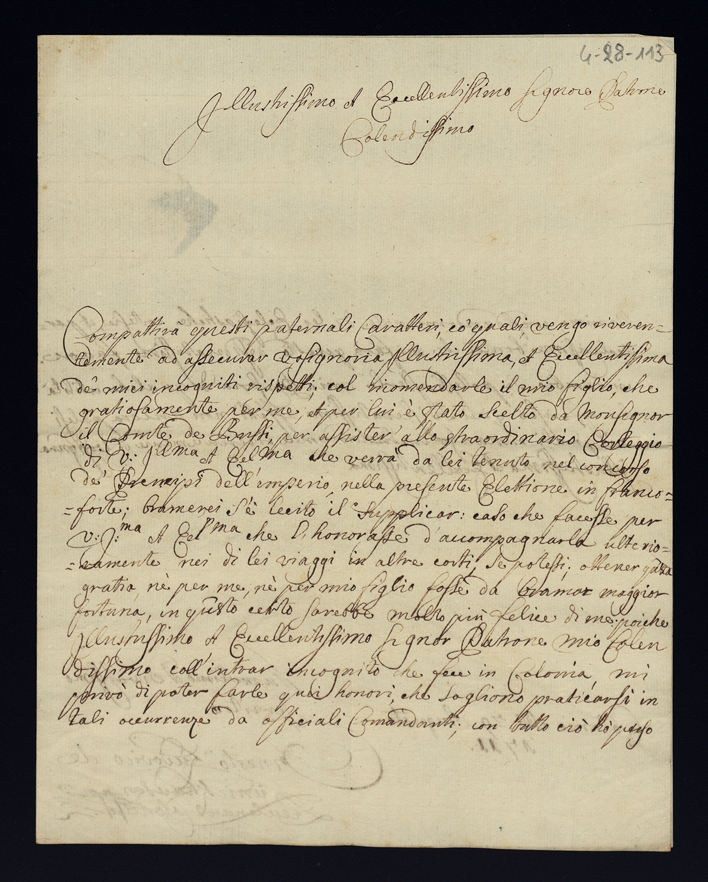 4-28-113
Illustrissimo et Eccellentissimo Signore Patrone
Colendissimo
Compattirà questi paternali Caratteri, co' quali vengo riveren-
temente ad assecurar Vosignoria Illustrissima, et Eccellentissima
de' miei incogniti rispetti, col ricomendarle il mio figlio, che
gratiosamente per me, et per lui è stato scelto da Monsignor
il Comte de Bussi, per assister' allo straordinario Corteggio
di V: Illma et Ecelma che verrà da lei tenuto nel concorso
de' Prencipi dell'imperio, nella presente Elettione in franco-
-forte; bramerei s'è lecito il supplicar: caso che facesse per
V: I:ma et Ecelma che l'honorasse d'accompagnarla ulterio-
-ramente nei di lei viaggi in altre corti, se potessi ottener questa
gratia nè per me, nè per mio figlio fosse da bramar maggior
fortuna, in questo certo sarebbe molto più felice di me, poiche
Illustrissimo et Eccellentissimo Signor Patrone mio Colen
dissimo coll'intrar incognito che fece in Colonia, mi
privò di poter farle quei honori, che sogliono praticarsi in
tali occurrenze da officiali Comandanti; con tutto ciò hò preso